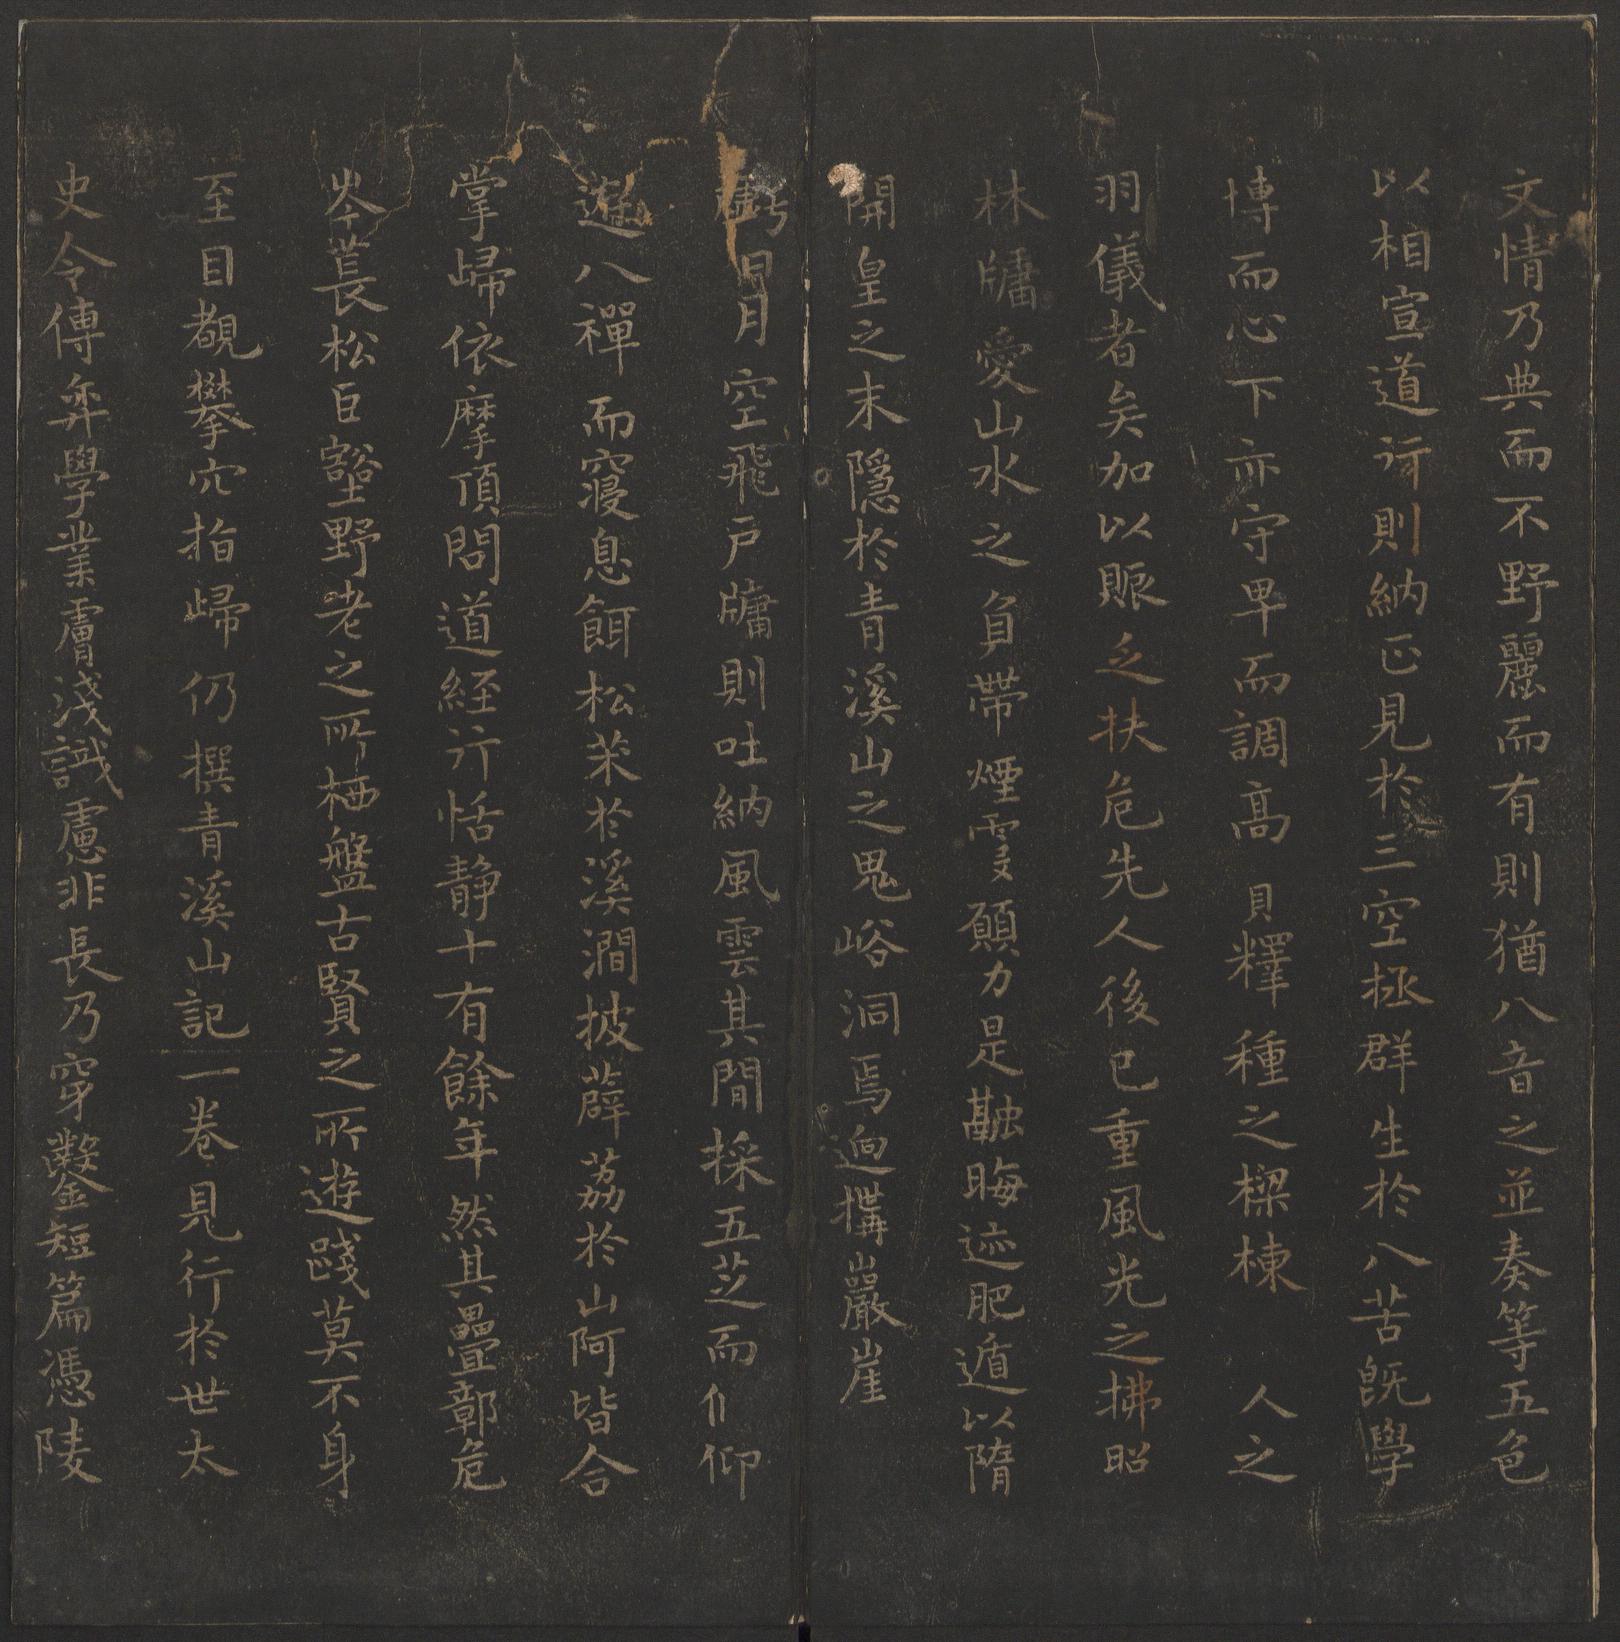 文情乃典而不野麗而有則猶八音之並奏等五色
以相宣道行則納正見於三空拯群生於八苦既學
博而心下亦守卑而調高貝釋種之樑棟人之
羽儀者矣加以賑乏扶危先人後已重風光之拂昭
林牖愛山水之負帶煙雲願力是融晦迹肥遁以隋
開皇之末隱於青溪山之鬼峪洞焉迥搆巖崖
虧日月空飛戶牖則吐納風雲其間採五芝而仰
遊八禪而寢息餌松茱於溪澗披薜荔於山阿皆合
掌歸依摩頂問道經行恬靜十有餘年然其疊鄣危
岑萇松巨壑野老之所栖盤古賢之所遊踐莫不身
至目覩攀穴指歸仍撰青溪山記一卷見行於世太
史令傅弈學業膚淺識慮非長乃穿鑿短篇憑陵